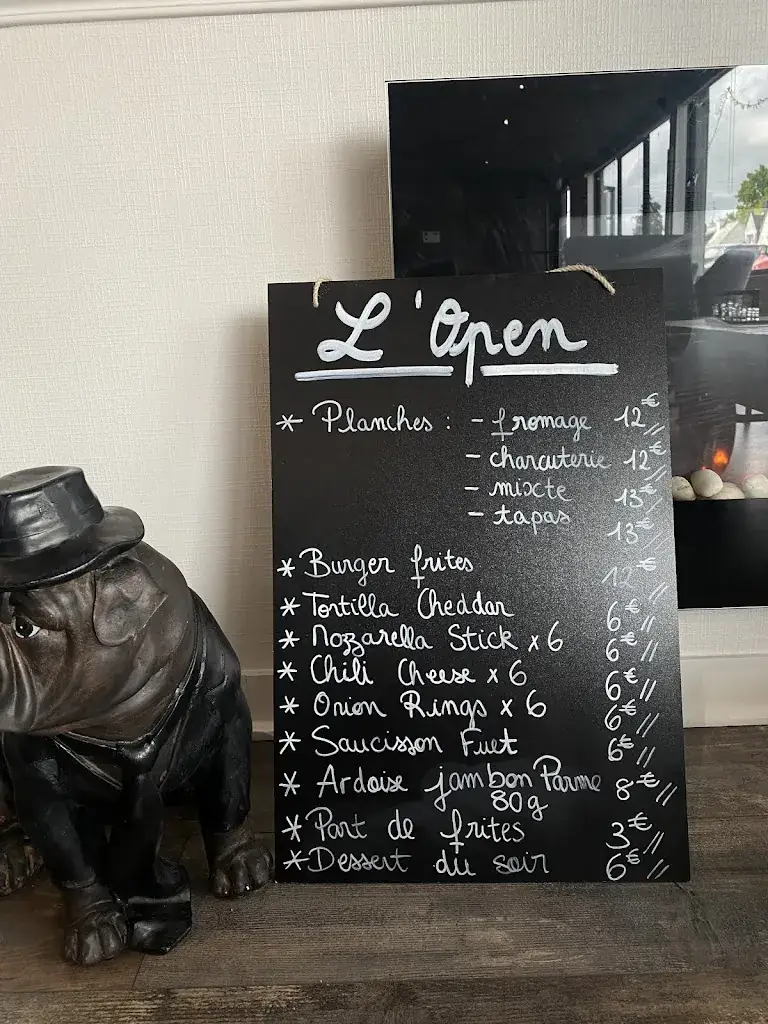 L'Open
* Planches : - fromage 12€//
- charcuterie 12€//
- mixte 13€//
- tapas 13€//
* Burger frites 12€//
* Tortilla Cheddar 6€//
* Mozzarella Stick x 6 6€//
* Chili Cheese x 6 6€//
* Onion Rings x 6 6€//
* Saucisson Fuet 6€//
* Ardoise jambon Parme 8€//
80g
* Part de frites 3€//
* Dessert du soir 6€//